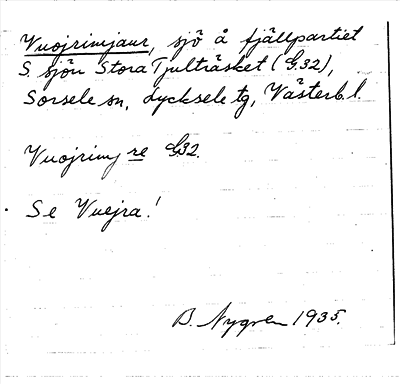 Vuojrimjaur, sjö å fjällpartiet
S. sjön Stora Tjulträsket (G.32),
Sorsele sn, Lycksele tg, Västerb.l.
Vuojrimj re G32.
Se Vuejra!
B. Nygren 1935.